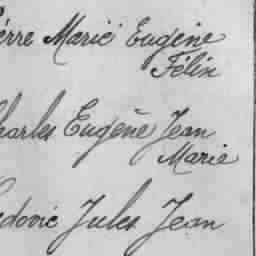 Pierre Marie Eugène
Félix
Charles Eugène Jean
Marie
Ludovic Jules Jean